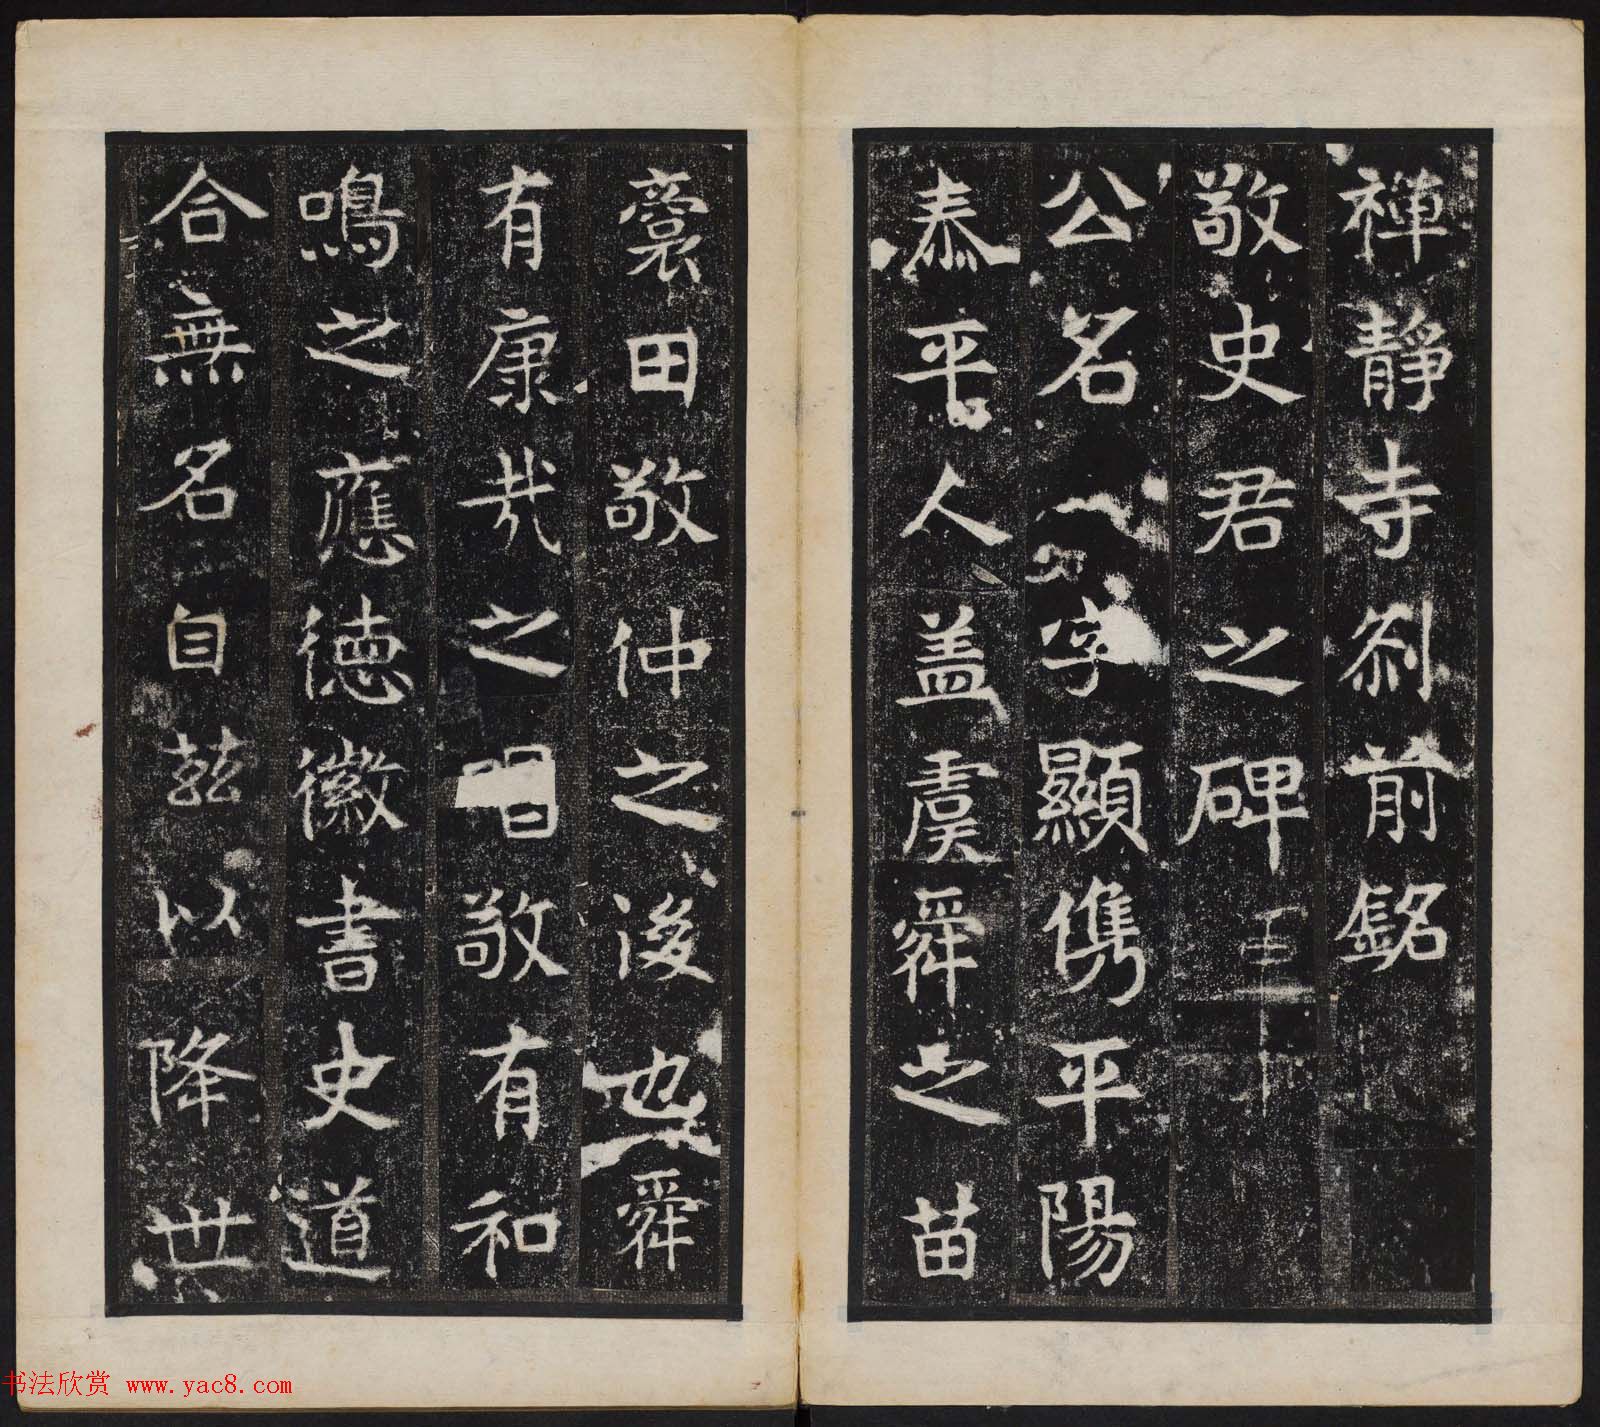 禪靜寺刹前銘
敬史君之碑
公名字顯儁平陽
泰平人盖虞舜之苗
裔田敬仲之後也舜
有康哉之唱敬有和
鳴之應德徽書史道
合無名自茲以降世
书法欣赏 www.yac8.com